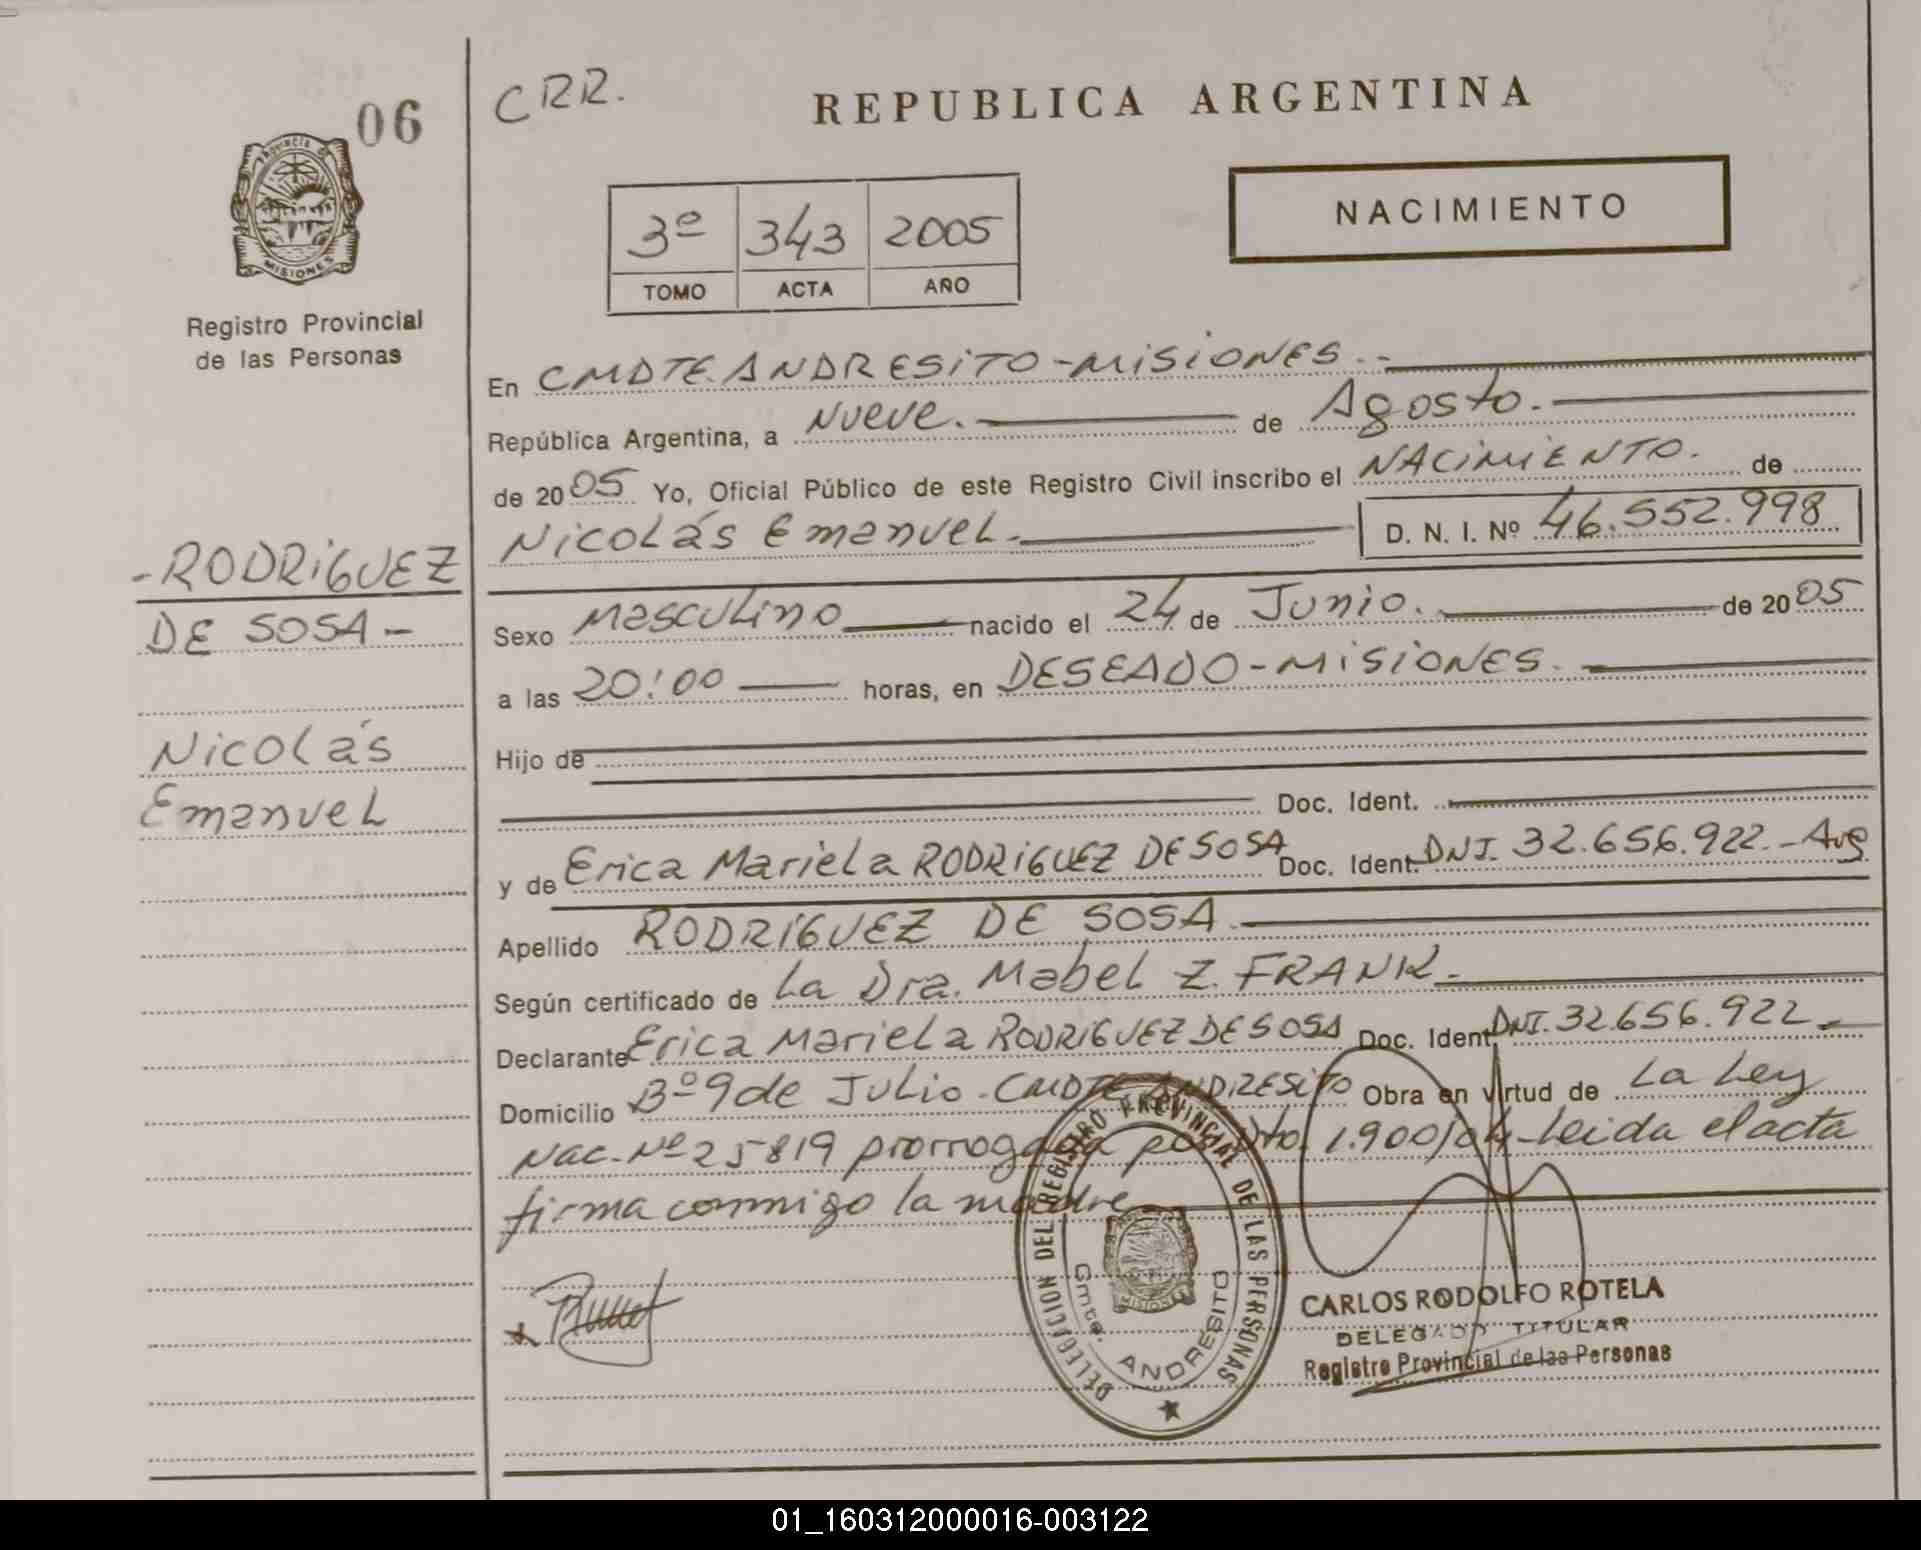 06
CRR.
REPUBLICA ARGENTINA
PROVINCIA DE
MISIONES
Registro Provincial
de las Personas
3º 343 2005
TOMO ACTA AÑO
NACIMIENTO
En CMDTE. ANDRESITO - MISIONES.
República Argentina, a Nueve. de Agosto.
de 2005 Yo, Oficial Público de este Registro Civil inscribo el NACIMIENTO. de
Nicolás Emanuel. D. N. I. Nº 46.552.998
-RODRIGUEZ
DE SOSA-
Nicolás
Emanuel
Sexo Masculino nacido el 24 de Junio. de 2005
a las 20:00 horas, en DESEADO - MISIONES.
Hijo de
Doc. Ident.
y de Erica Mariela RODRIGUEZ DE SOSA Doc. Ident. DNI. 32.656.922.- Arg
Apellido RODRIGUEZ DE SOSA.
Según certificado de La Dra. Mabel Z. FRANK.
Declarante Erica Mariela RODRIGUEZ DE SOSA Doc. Ident. DNI. 32.656.922.
Domicilio Bº 9 de Julio - CMDTE ANDRESITO Obra en virtud de La Ley
Nac. Nº 25819 prorrogada por Dto. 1.900/04 - Leida el acta
firma conmigo la madre
DELEGACION DEL REGISTRO PROVINCIAL DE LAS PERSONAS
Cmte. ANDRESITO
MISIONES
CARLOS RODOLFO ROTELA
DELEGADO TITULAR
Registro Provincial de las Personas
01_160312000016-003122